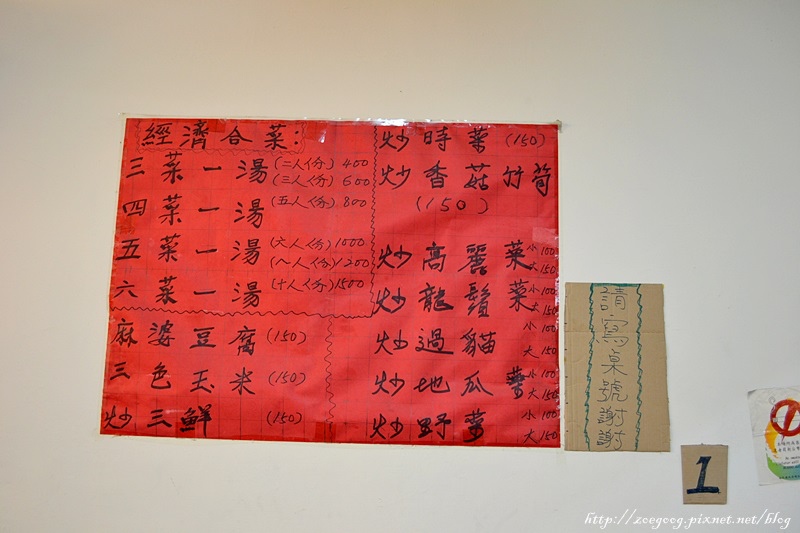 經濟合菜:
三菜一湯(二人份)400
(三人份)600
四菜一湯(五人份)800
五菜一湯(六人份)1000
(八人份)1200
六菜一湯(十人份)1500
麻婆豆腐(150)
三色玉米(150)
炒三鮮(150)
炒時菜(150)
炒香菇竹筍
(150)
炒高麗菜小100
大150
炒龍鬚菜小100
大150
炒過貓小100
大150
炒地瓜葉小100
大150
炒野菜小100
大150
請寫桌號謝謝
1
http://zoegoog.pixnet.net/blog